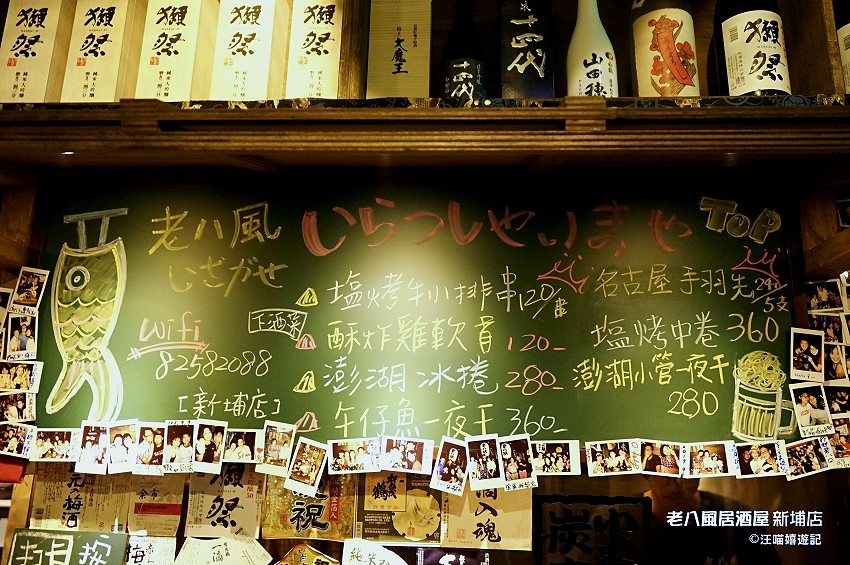 獺祭
獺祭
獺祭
獺祭
獺祭
大魔王
十四代
十四代
山田穂
獺祭
老八風
いざがせ
いらっしゃいませ
TOP
wifi
82582088
[新埔店]
下酒菜
塩烤牛小排串120/串
酥炸雞軟骨 120-
澎湖冰捲 280-
午仔魚一夜干 360-
名古屋手羽先 240/5支
塩烤中卷 360
澎湖小管一夜干
280
梅酒
獺祭
祝
鶴
魂
打卡 按
老八風居酒屋 新埔店
©汪喵嬉遊記